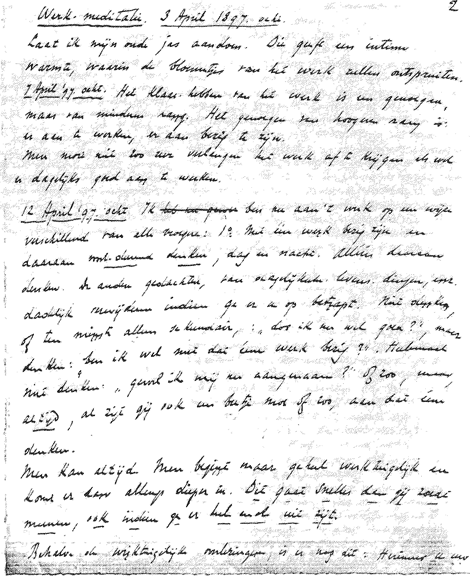 2
Werk-meditatie. 3 April 1897. ocht.
Laat ik mijn oude jas aandoen. Die geeft een intieme
warmte, waarin de bloempjes van het werk zullen ontspruiten.
7 April '97. ocht. Het klaar-hebben van het werk is een genoegen,
maar van minderen rang. Het genoegen van hoogeren rang is:
er aan te werken, er aan bezig te zijn.
Men moet niet zoo zeer verlangen het werk af te krijgen als wel
er dagelijks goed aan te werken.
12 April '97. ocht. Ik ben nu aan 't werk op een wijze
verschillend van alle vroegere: 1º. Met één werk bezig zijn en
daaraan voort-durend denken, dag en nacht. Alléén daaraan
denken. De andere gedachten, van dagelijksche levens-dingen,
dadelijk verwijderen indien ge er u op betrapt. Niet
of ten minste alleen secundair, : „doe ik nu wel goed?", maar
denken: „ben ik wel met dat ééne werk bezig?". Heelemaal
niet denken: „gevoel ik mij nu aangenaam?" of zoo, maar,
altijd, al zijt gij ook een beetje moe of zoo, aan dat ééne
denken.
Men kan altijd. Men begint maar geheel werktuigelijk en
komt er dan allengs dieper in. Dit gaat sneller dan gij zoudt
meenen, ook indien ge er heel niet zijt.
Behalve de werktuigelijke is er nog dit: Herinner u